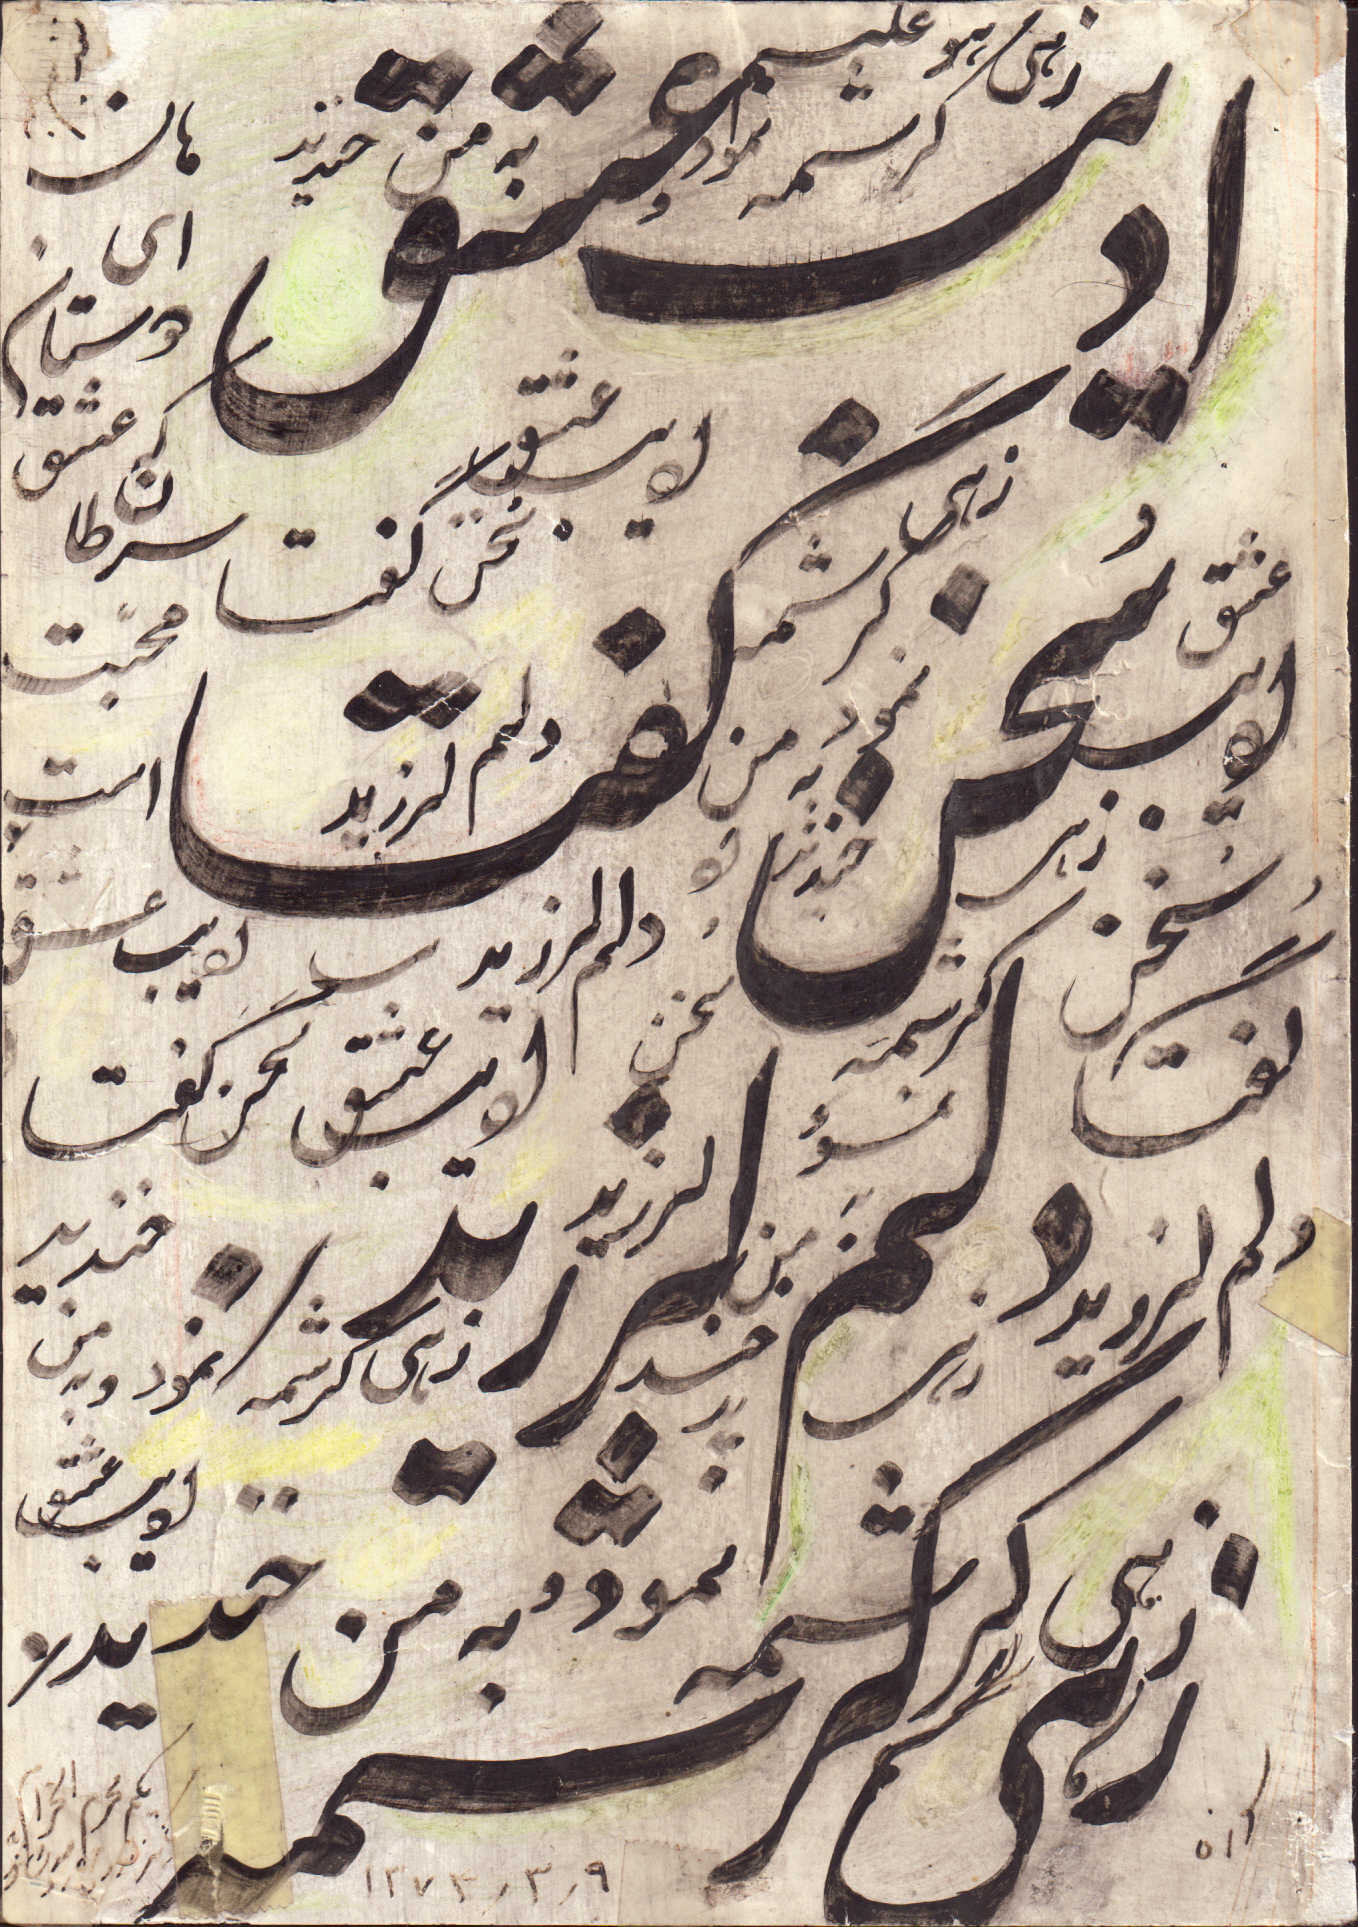 زهی
کرشمه
نمود و
به من خندید
ادیب عشق
هان
ای
دوستان
که عشق
سرطان
محبت
است
ادیب عشق
ادیب عشق
سخن گفت
زهی
کرشمه
نمود
به من
خندید
سخن گفت
عشق
ادیب
سخن
گفت
دلم لرزید
دلم لرزید
زهی
کرشمه
سخن
ادیب عشق سخن گفت
دلم لرزید
لرزید
من
دلم لرزید
خندید
زهی کرشمه نمود و به من
زهی
ادیب عشق
زهی کرشمه نمود و به من خندید
زهی کرشمه
یکم محرم الحرام
۱۳۷۳٫۳٫۹